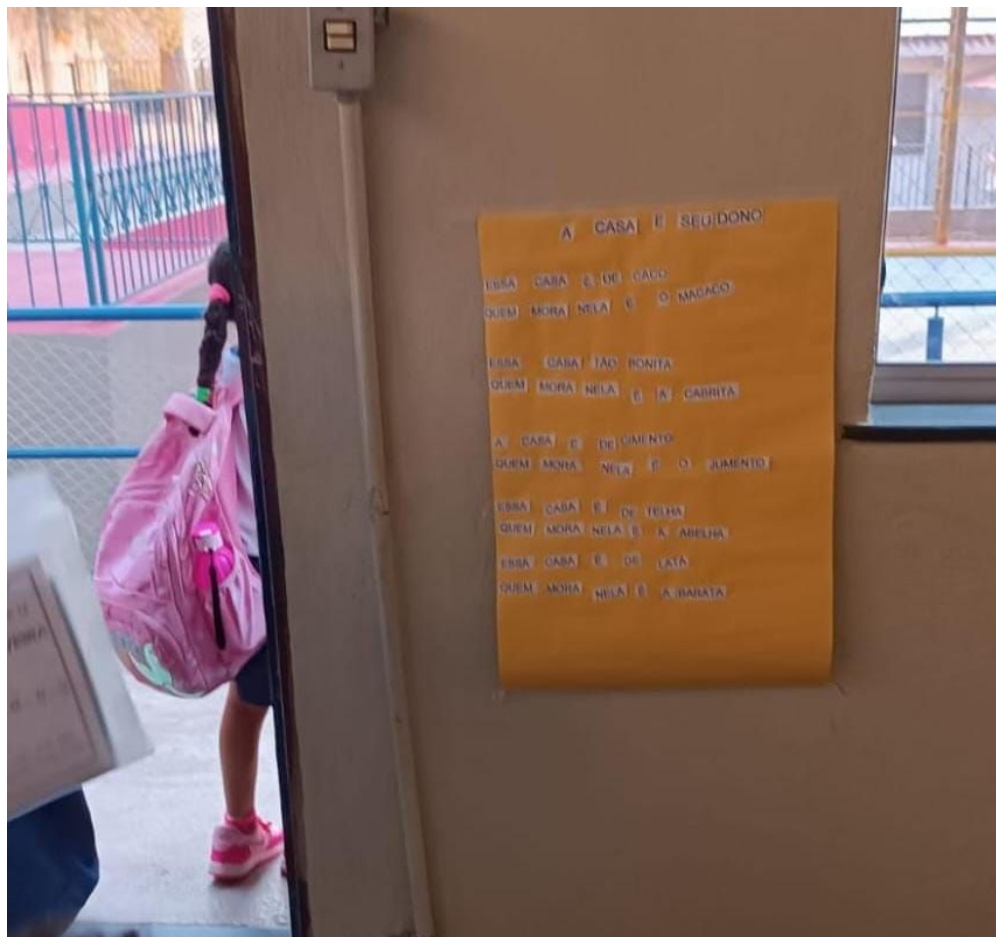 A CASA E SEU DONO
ESSA CASA É DE CACO
QUEM MORA NELA É O MACACO
ESSA CASA TÃO BONITA
QUEM MORA NELA É A CABRITA
A CASA É DE CIMENTO
QUEM MORA NELA É O JUMENTO
ESSA CASA É DE TELHA
QUEM MORA NELA É A ABELHA
ESSA CASA É DE LATA
QUEM MORA NELA É A BARATA